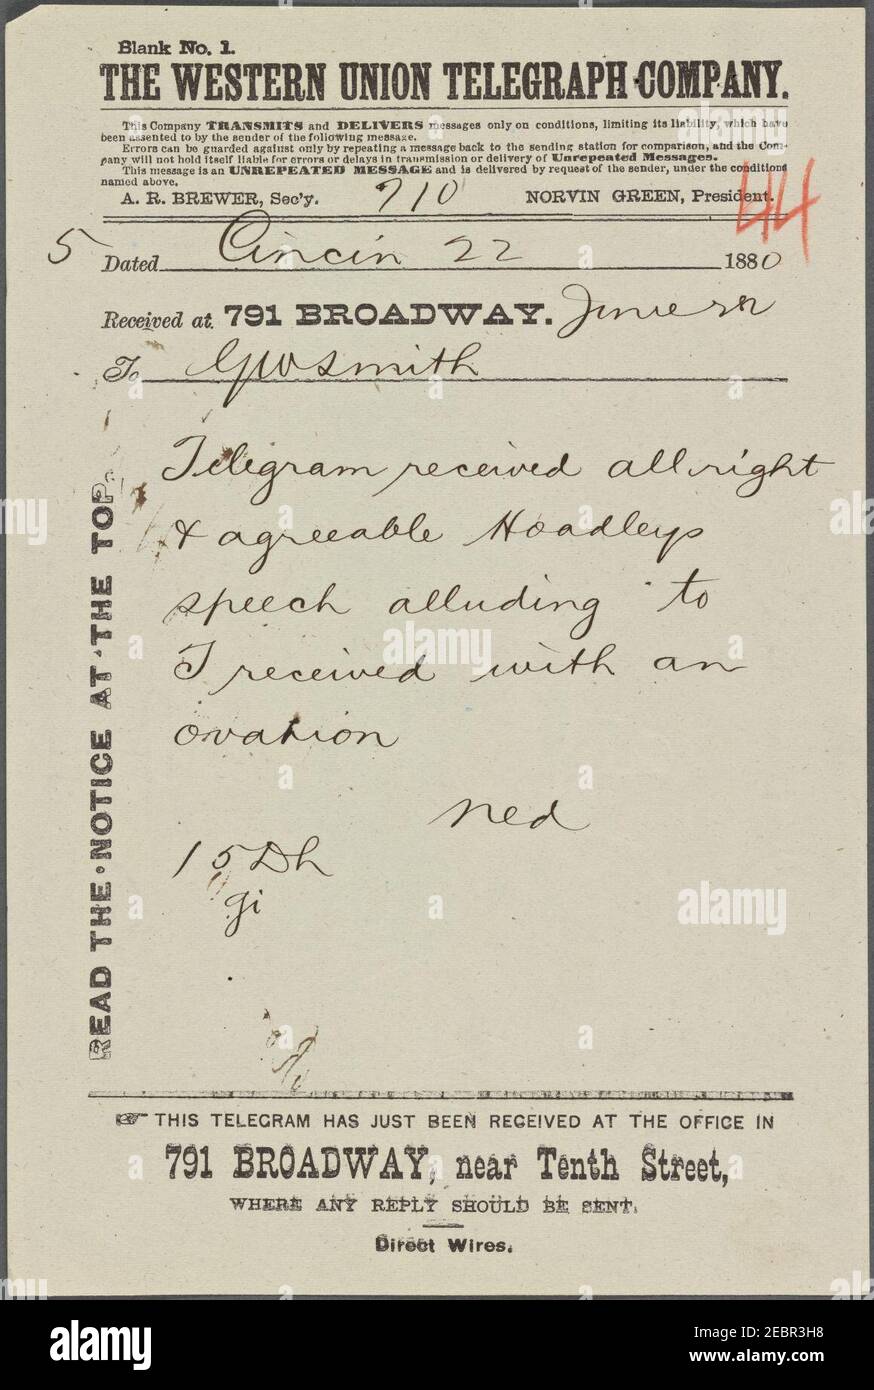 Blank No. 1.
THE WESTERN UNION TELEGRAPH COMPANY.
This Company TRANSMITS and DELIVERS messages only on conditions, limiting its liability, which have
been assented to by the sender of the following message.
Errors can be guarded against only by repeating a message back to the sending station for comparison, and the Com-
pany will not hold itself liable for errors or delays in transmission or delivery of Unrepeated Messages.
This message is an UNREPEATED MESSAGE and is delivered by request of the sender, under the conditions
named above.
A. R. BREWER, Sec'y. 710 NORVIN GREEN, President.
44
5 Dated Cincin 22 1880
Received at 791 BROADWAY. June
To GWSmith
Telegram received all right
& agreeable Hoadleys
speech alluding to
T received with an
ovation
Ned
15 Dh
gi
READ THE NOTICE AT THE TOP.
THIS TELEGRAM HAS JUST BEEN RECEIVED AT THE OFFICE IN
791 BROADWAY, near Tenth Street,
WHERE ANY REPLY SHOULD BE SENT.
Direct Wires.
alamy
Image ID: 2EBR3H8
www.alamy.com